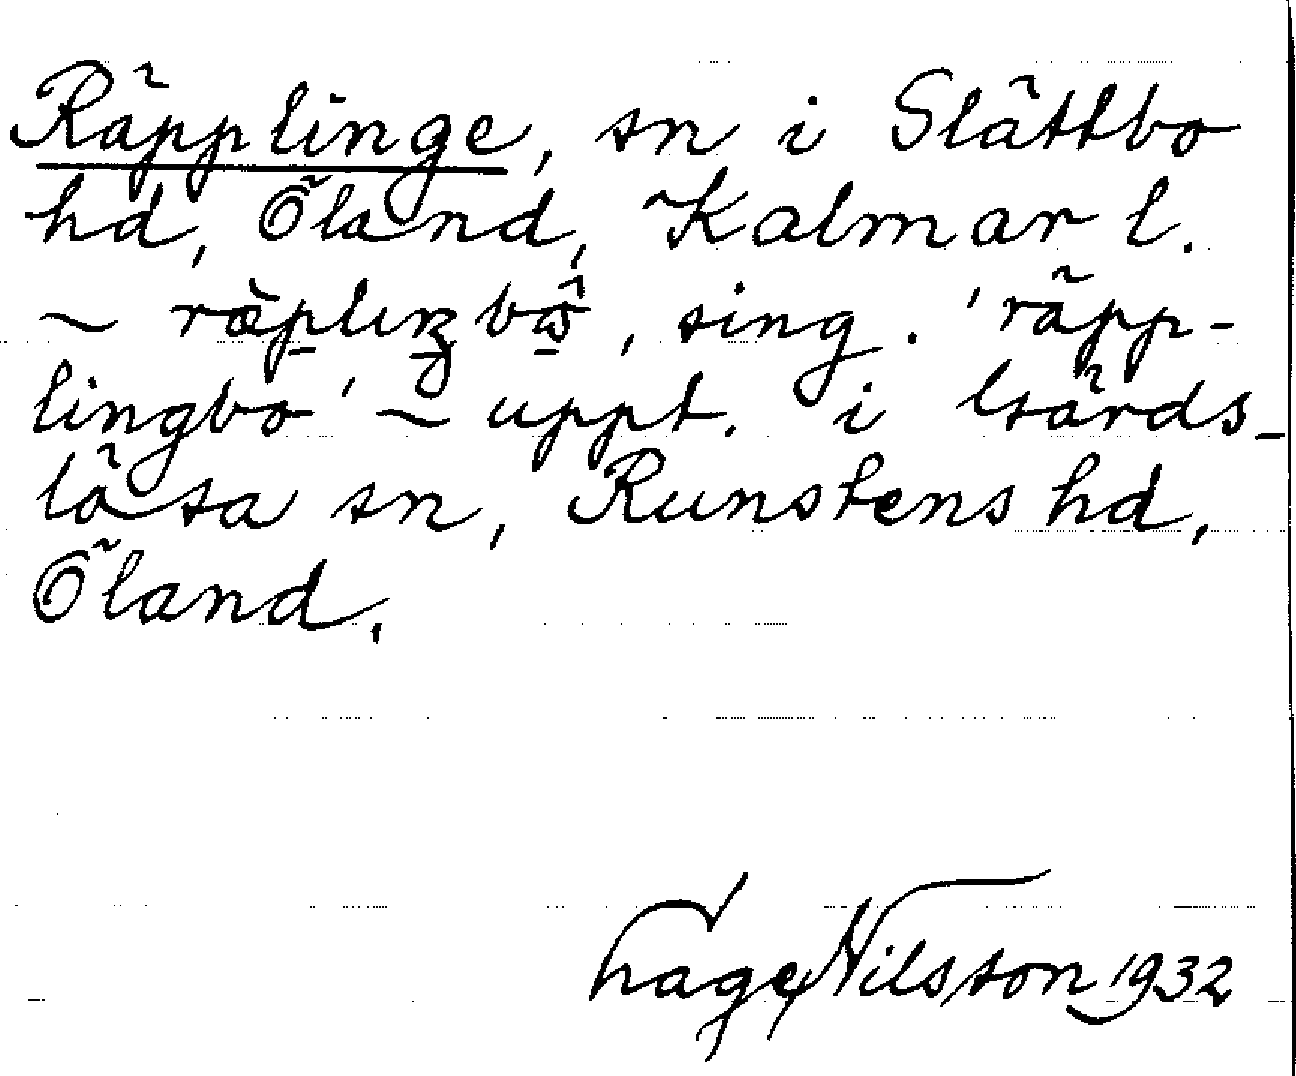 Räpplinge, sn i Slättbo
hd, Öland, Kalmar l.
~ sing. 'räpp-
lingbo' ~ uppt. i Gärds-
lösa sn, Runstens hd,
Öland.
Tage Nilsson 1932